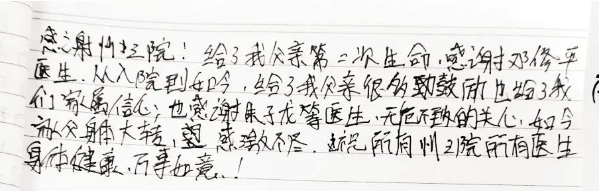 感谢州立医院！给了我父亲第二次生命，感谢邓修平
医生，从入院到如今，给了我父亲很多鼓励也给了我
们家属信心；也感谢朱子龙等医生，无危不致的关心，如今
父身体大转，感激不尽。祝所有州立院所有医生
身体健康，万事如意！